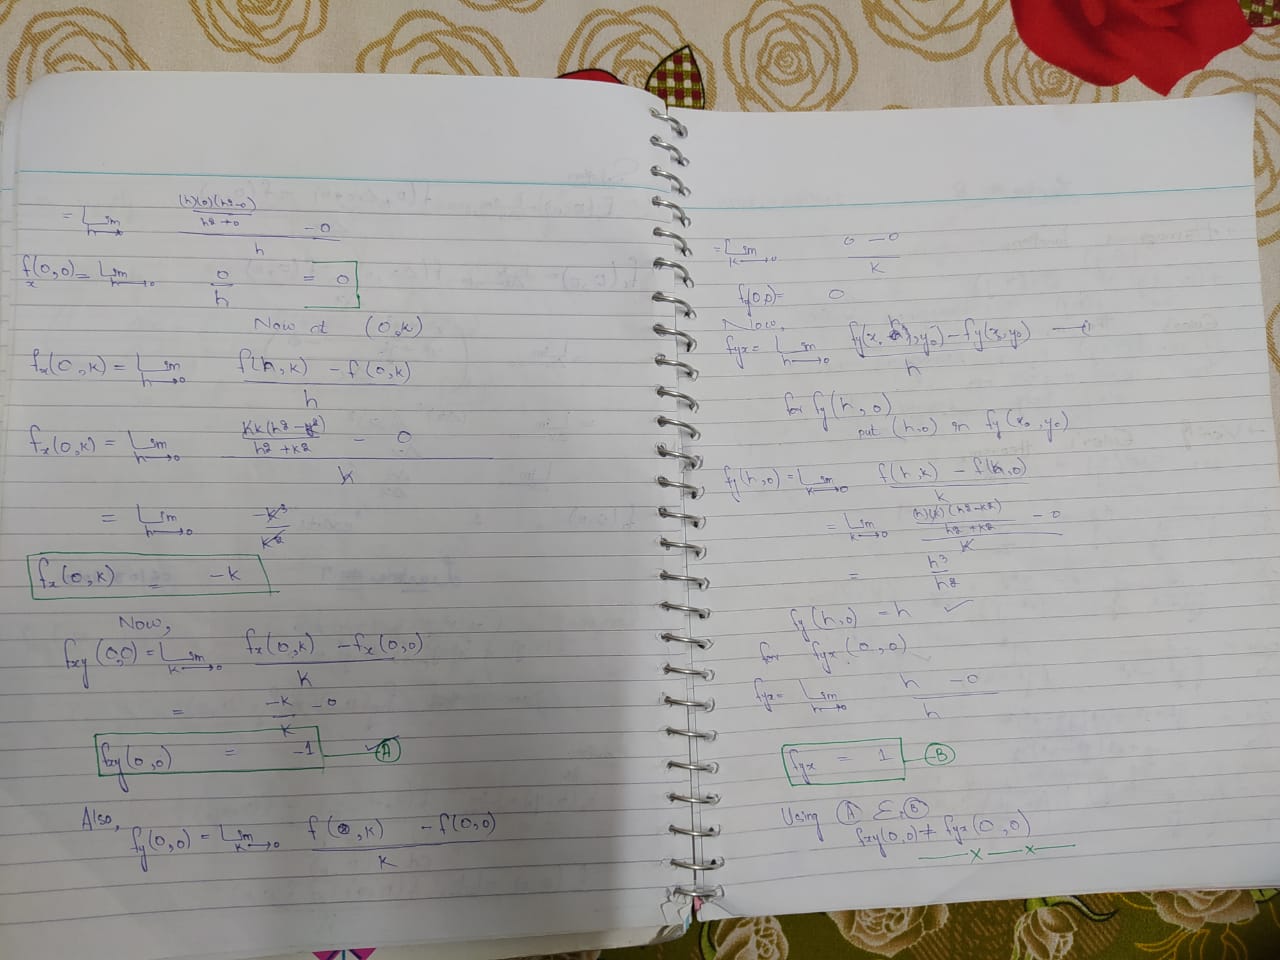 = Lim h→ ((h)(0)(h2-0) / h2+0 - 0) / h
fx(0,0) = Lim h→0 0/h = 0
Now at (0,k)
fx(0,k) = Lim h→0 (f(h,k) - f(0,k)) / h
fx(0,k) = Lim h→0 (hk(h2-k2) / h2+k2 - 0) / h
= Lim h→0 -k3 / k2
fx(0,k) = -k
Now,
fxy(0,0) = Lim k→0 (fx(0,k) - fx(0,0)) / k
= (-k - 0) / k
fxy(0,0) = -1 — A
Also,
fy(0,0) = Lim k→0 (f(0,k) - f(0,0)) / k
= Lim k→0 (0 - 0) / k
fy(0,0) = 0
Now,
fyx = Lim h→0 (fy(x. h, y0) - fy(x,y0)) / h
for fy(h,0)
put (h,0) in fy(x0,y0)
fy(h,0) = Lim k→0 (f(h,k) - f(h,0)) / k
= Lim k→0 ((h)(k)(h2-k2) / h2+k2 - 0) / k
= h3 / h2
fy(h,0) = h ✓
for fyx(0,0)
fyx = Lim h→0 (h - 0) / h
fyx = 1 — B
Using A & B
fxy(0,0) ≠ fyx(0,0)
—x—x—